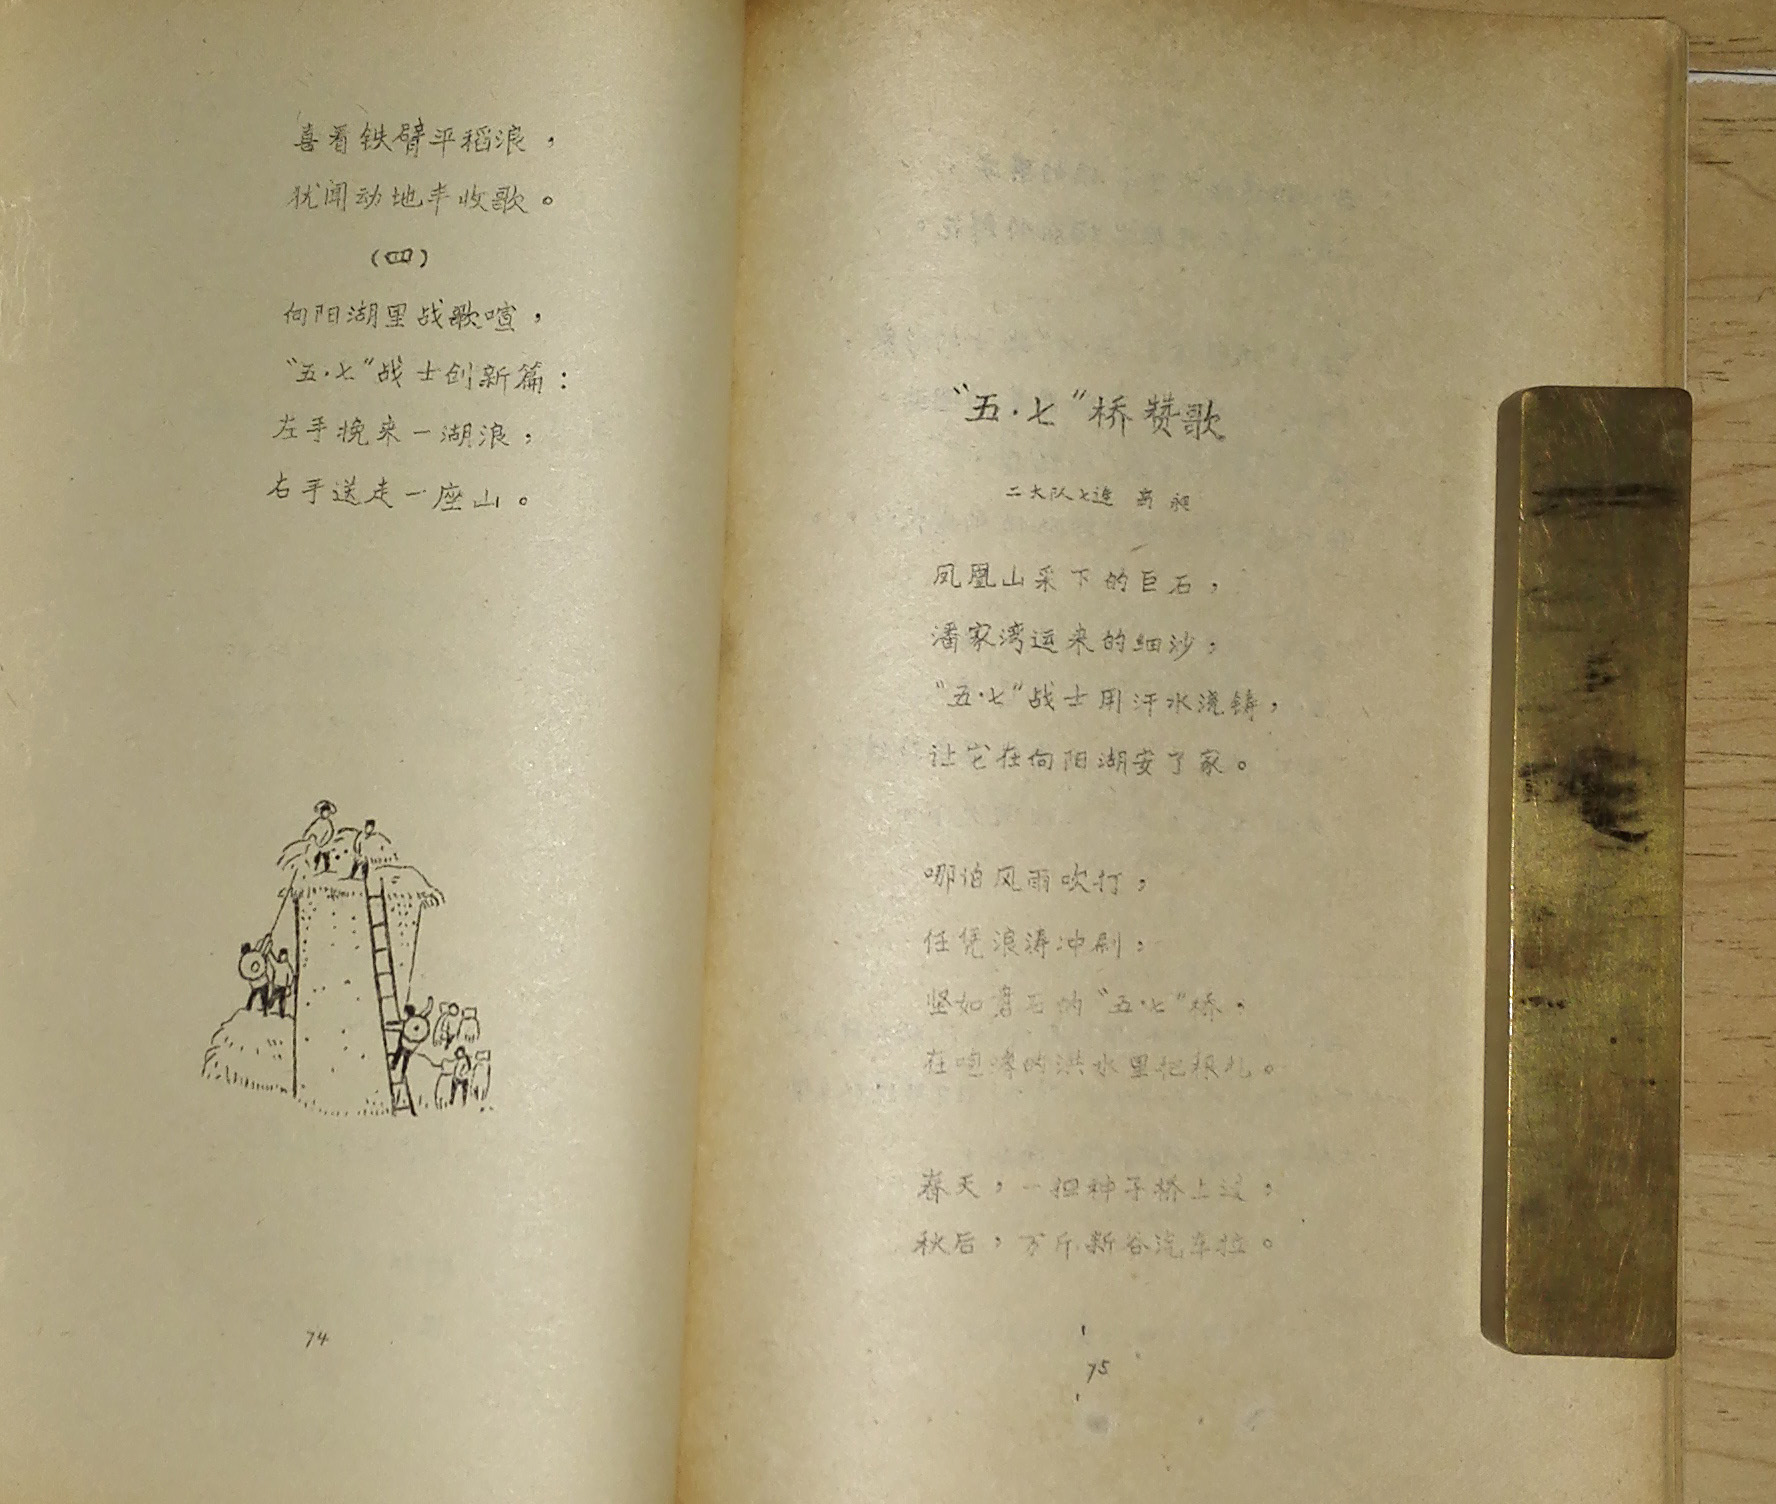 喜看铁臂平稻浪，
犹闻动地丰收歌。
（四）
向阳湖里战歌喧，
“五·七”战士创新篇：
左手挽来一湖浪，
右手送走一座山。
74
“五·七”桥赞歌
二大队七连
凤凰山采下的巨石，
潘家湾运来的细沙；
“五·七”战士用汗水浇铸，
让它在向阳湖安了家。
哪怕风雨吹打，
任凭浪涛冲刷；
坚如磐石的“五·七”桥，
在咆哮的洪水里把根扎。
春天，一担种子桥上过；
秋后，万斤新谷汽车拉。
75